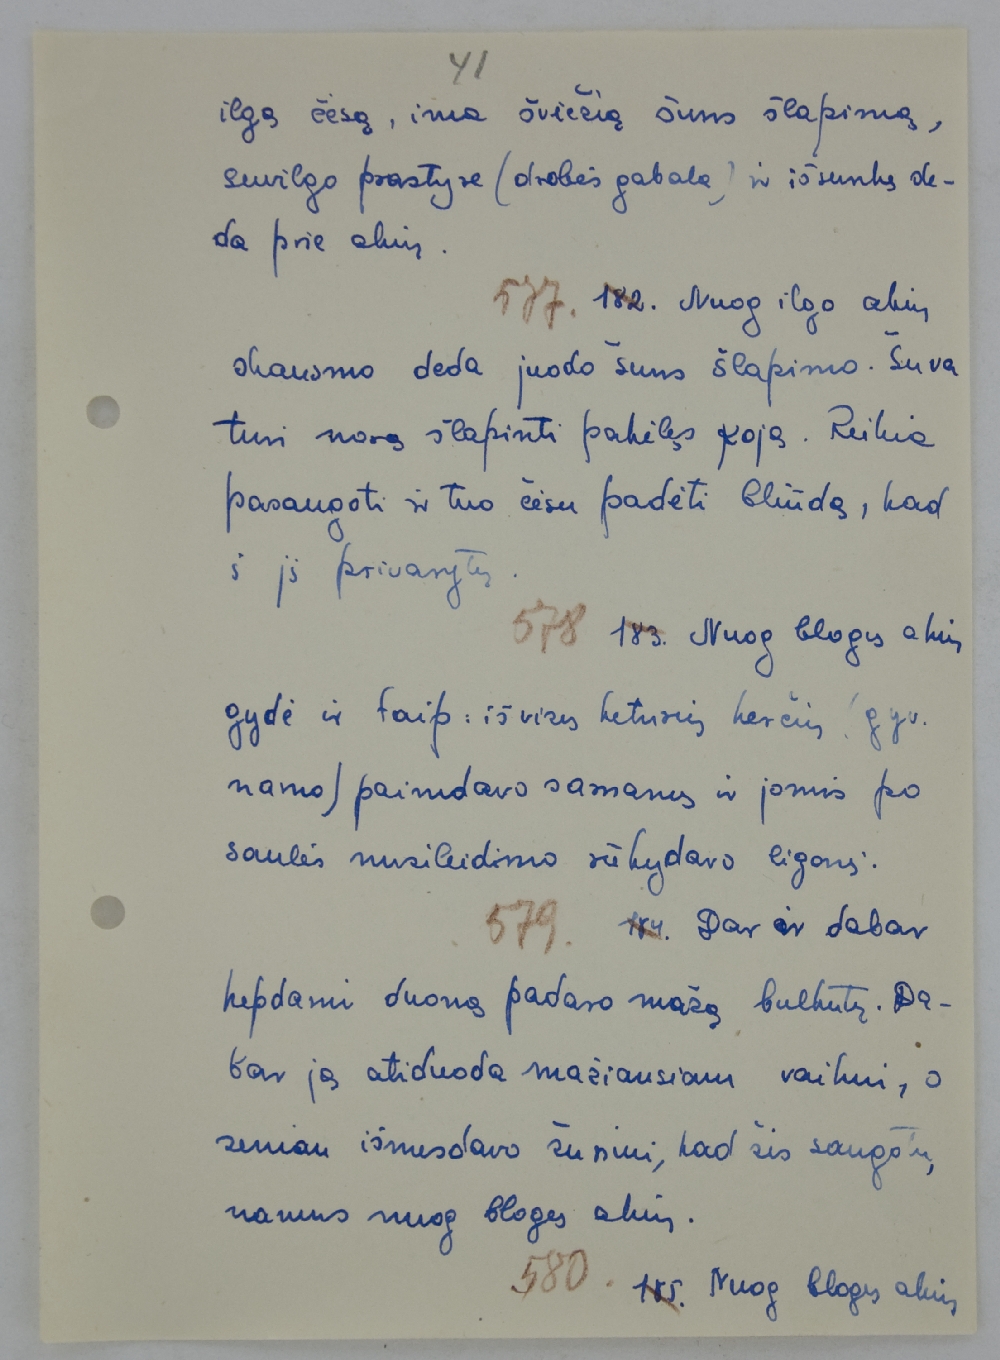 41
ilgą čėsą, ima šviežią šuns šlapimą,
suvilgo prastyrę (drobės gabalą) ir išsunkę de-
da prie akių.
577. 182. Nuog ilgo akių
skausmo deda juodo šuns šlapimo. Šuva
turi norą šlapinti pakėlęs koją. Reikia
pasaugoti ir tuo čėsu padėti bliūdą, kad
į jį privarytų.
578 183. Nuog blogų akių
gydė ir taip: iš visų keturių kerčių (gyv.
namo) paimdavo samanų ir jomis po
saulės nusileidimo rūkydavo ligonį.
579. 184. Dar ir dabar
kepdami duoną padaro mažą bulkutę. Da-
bar ją atiduoda mažiausiam vaikui, o
seniau išmesdavo šuniui, kad šis saugotų
namus nuog blogų akių.
580. 185. Nuog blogų akių